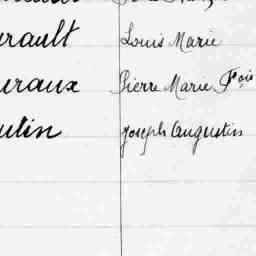 rault Louis Marie
raux Pierre Marie Fçois
lin Joseph Augustin